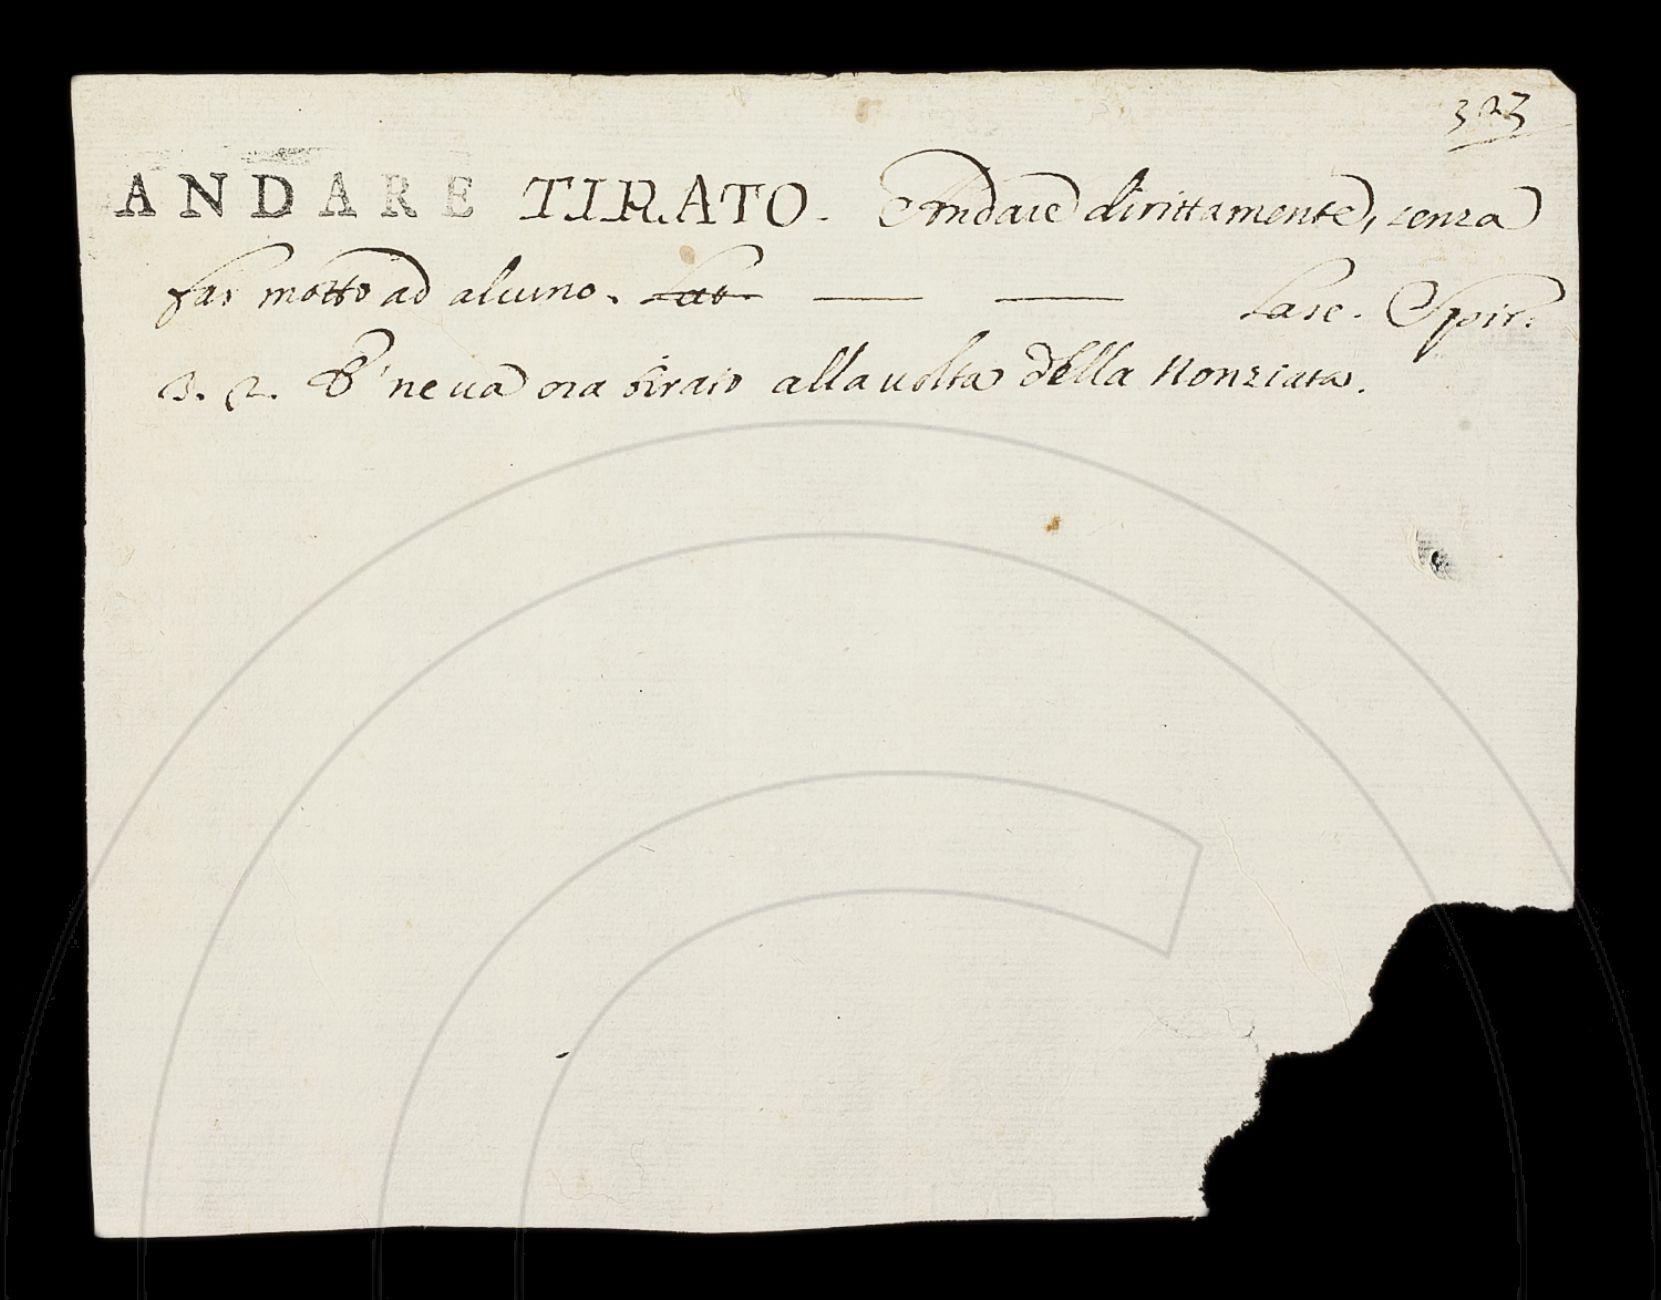 323
ANDARE TIRATO. Andare dirittamente, senza
far motto ad alcuno. — — Lasc. Spir.
3. 2. E' ne va ora tirato alla volta della Nonziata.